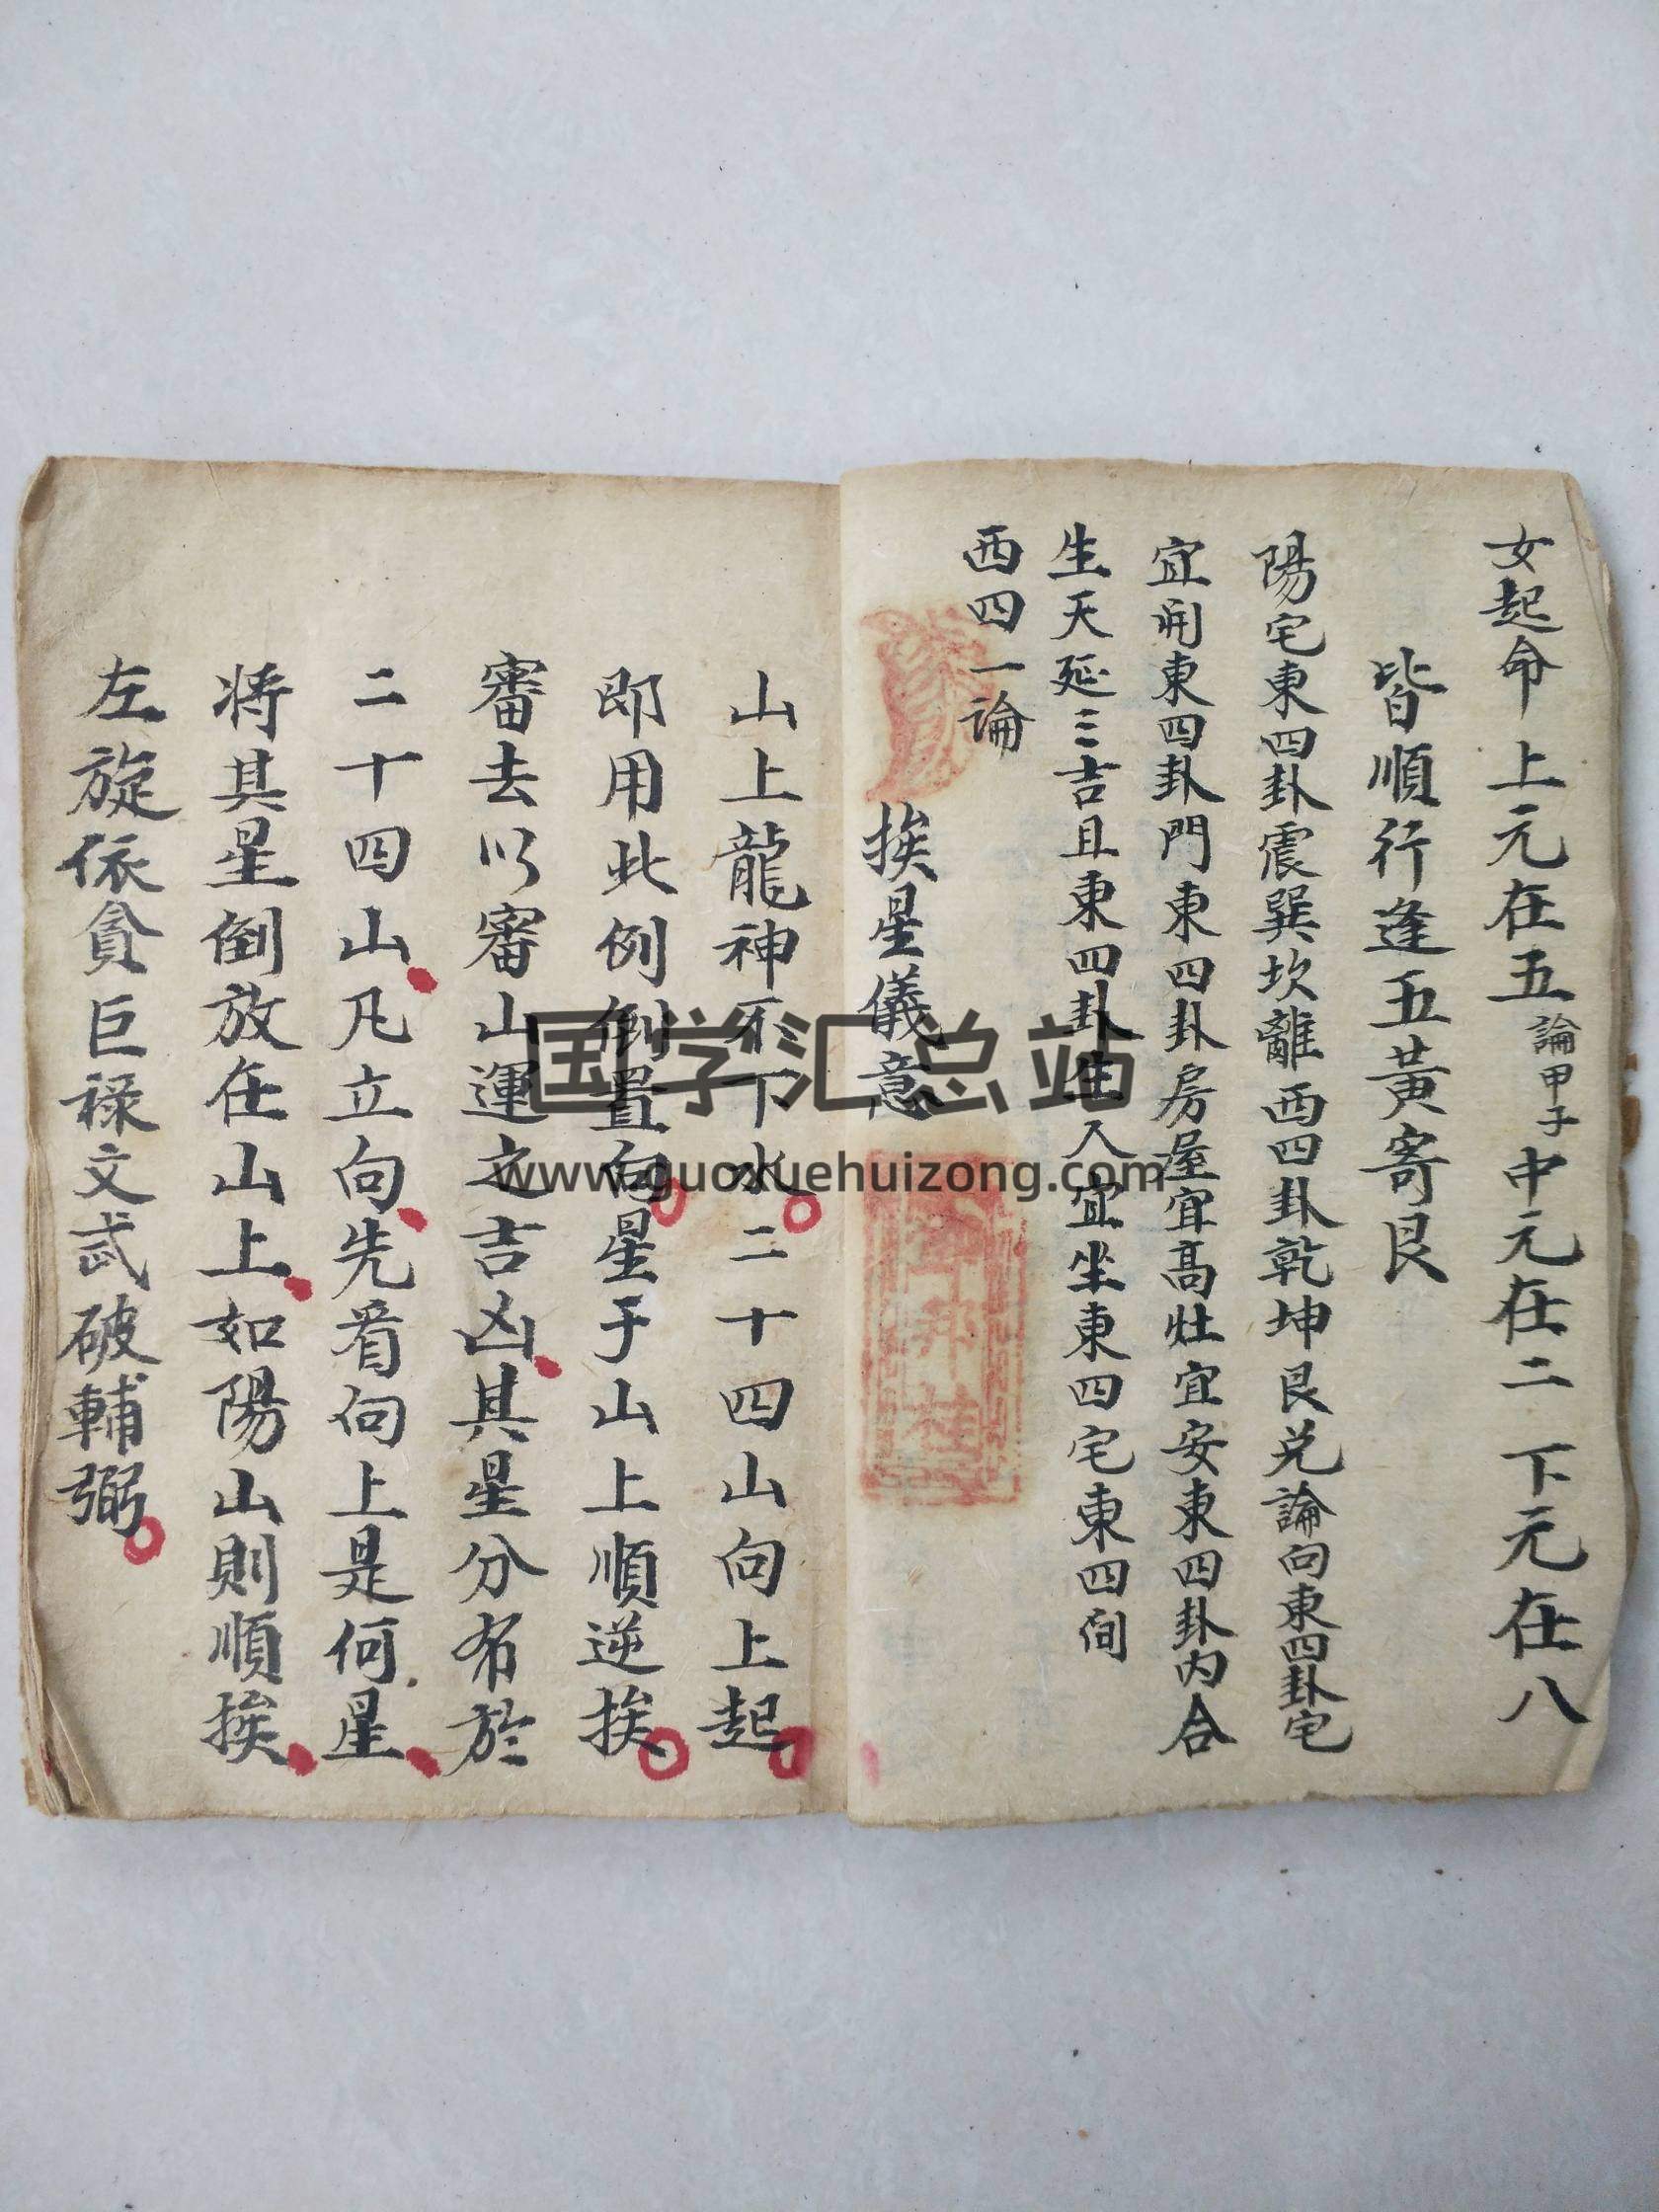 女起命 上元在五 論甲子 中元在二 下元在八
皆順行逢五黃寄艮
陽宅東四卦震巽坎離西四卦乾坤艮兌論向東四卦宅
宜開東四卦門東四卦房屋宜高灶宜安東四卦內合
生天延三吉且東四卦生人宜坐東四宅東四間
西四一論
挨星儀意
山上龍神不下水二十四山向上起
即用此例倒置向星于山上順逆挨
審去以審山運之吉凶其星分布於
二十四山凡立向先看向上是何星
將其星倒放在山上如陽山則順挨
左旋依貪巨祿文武破輔弼
国学汇总站
www.guoxuehuizong.com